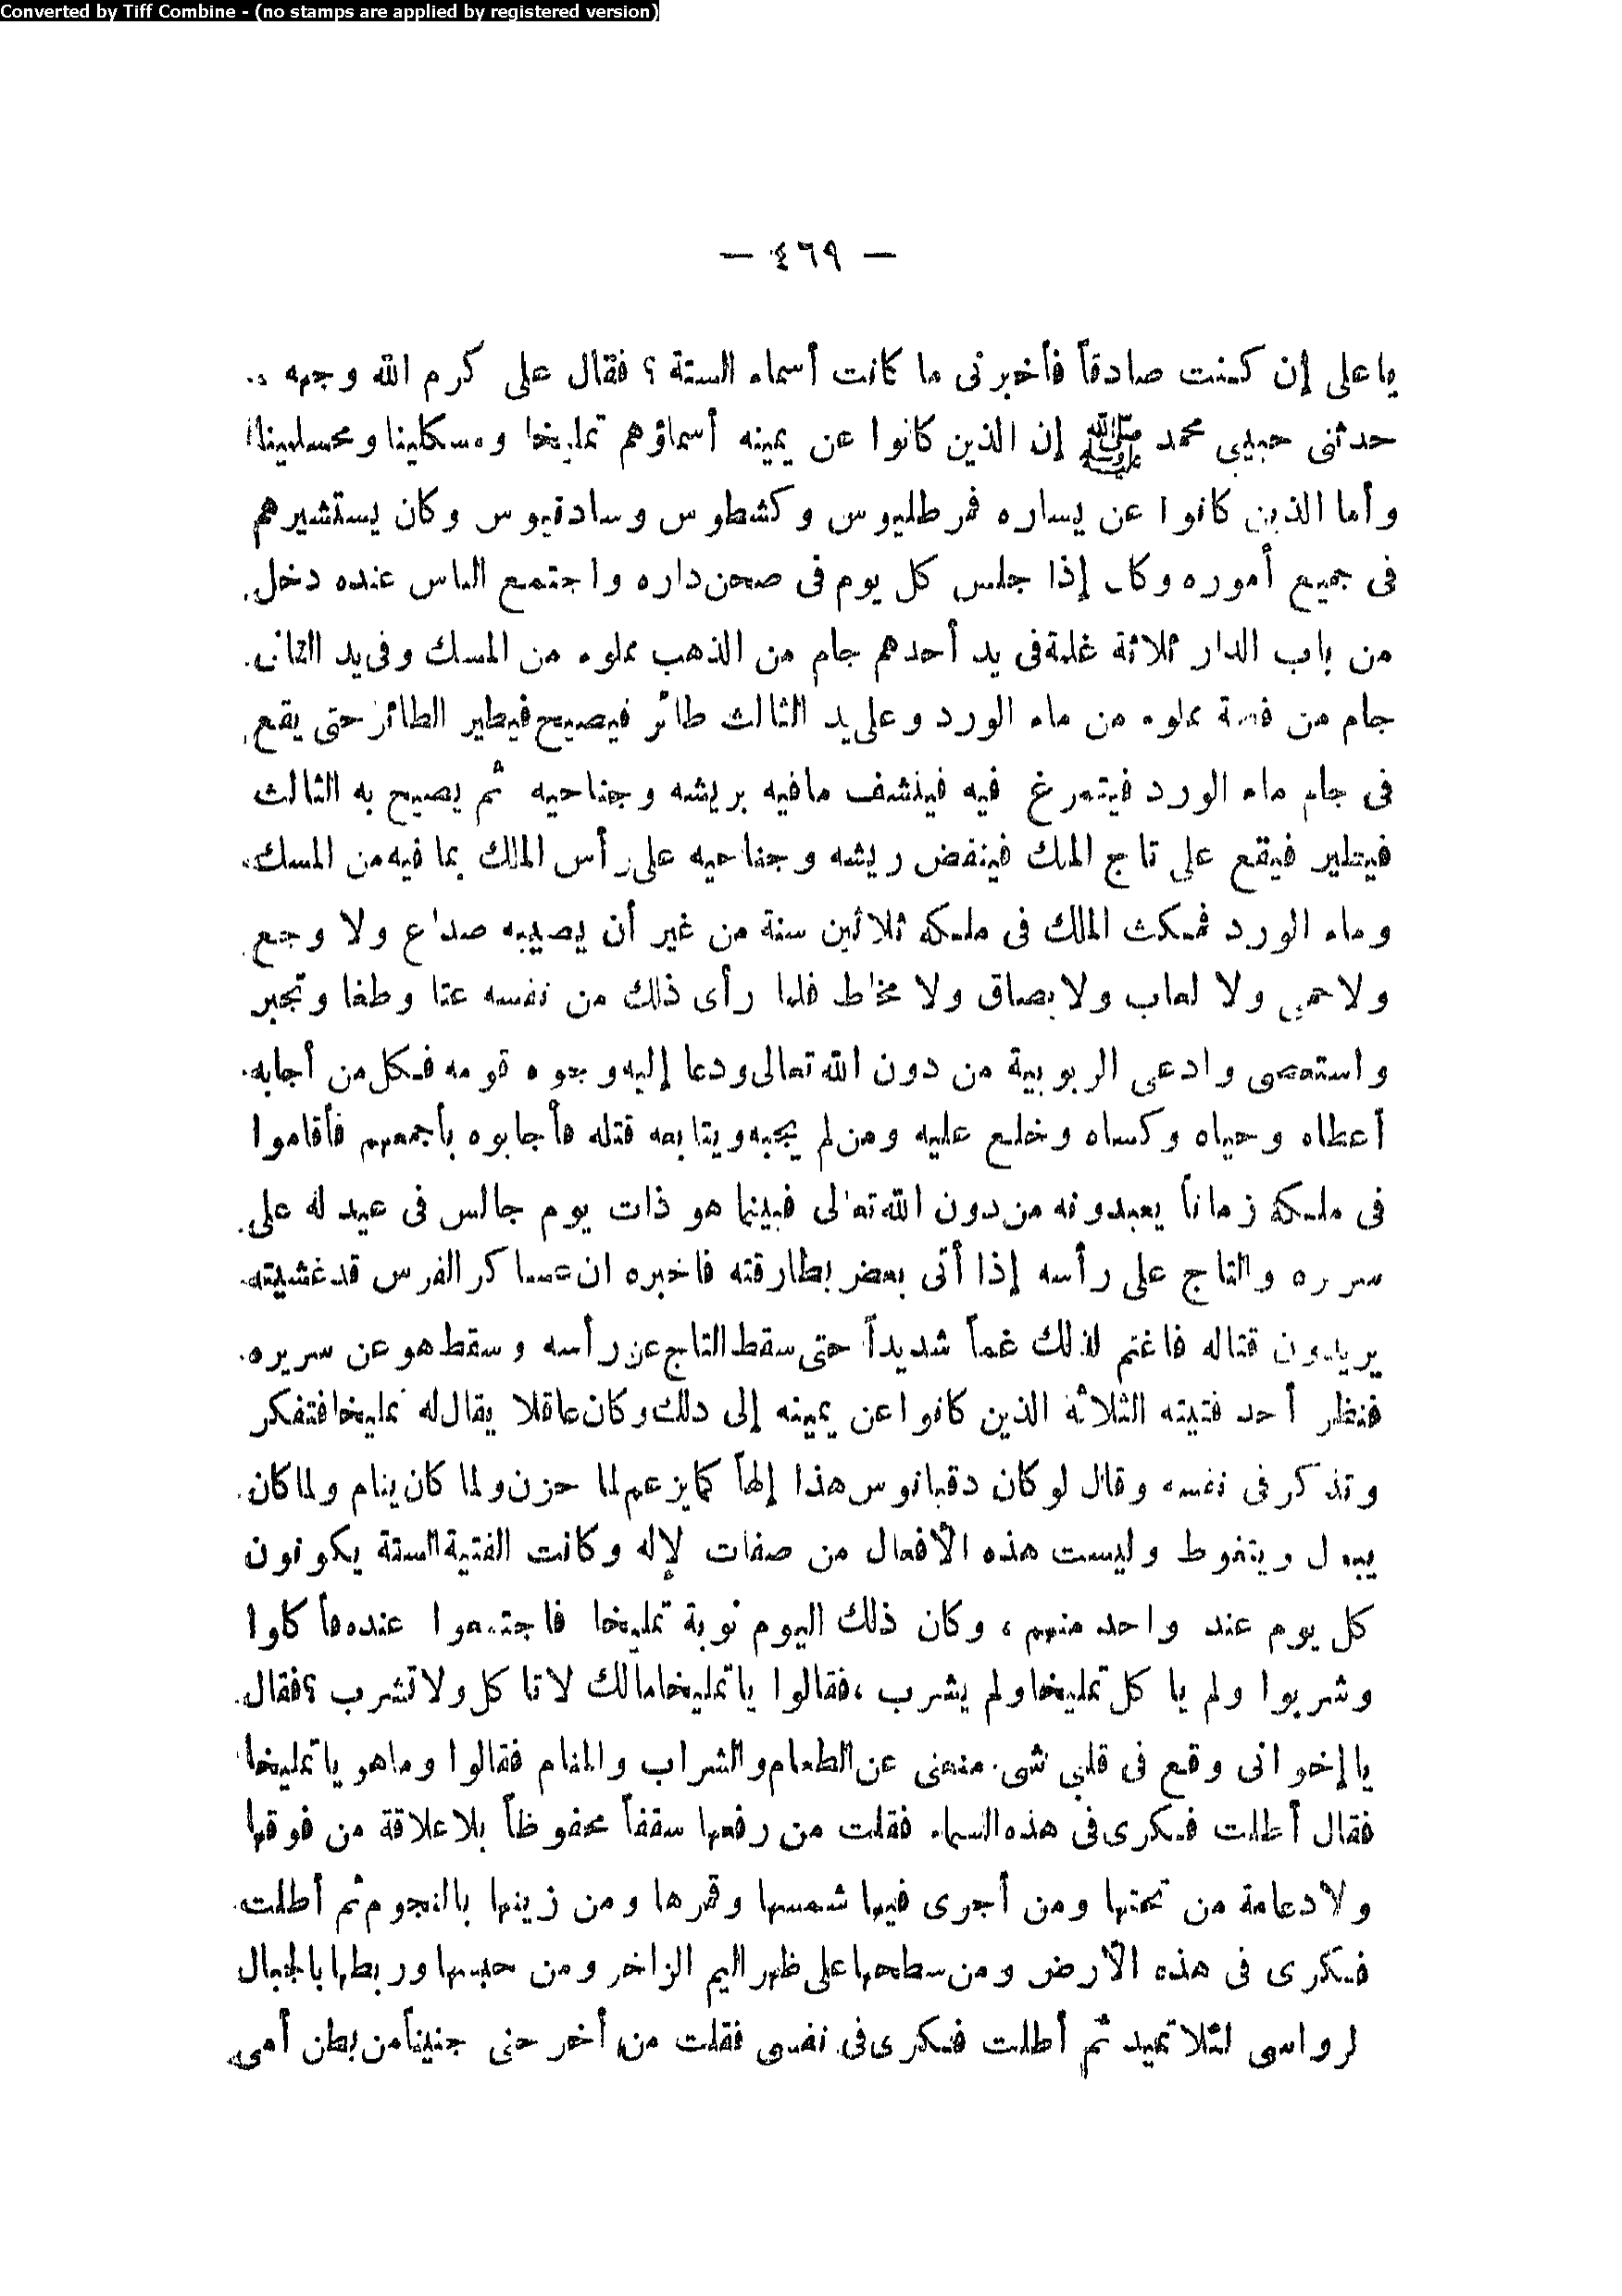 Converted by Tiff Combine - (no stamps are applied by registered version)
— ٤٦٩ —
يا على إن كنت صادقاً فأخبرنى ما كانت أسماء الستة ؟ فقال على كرم الله وجهه
حدثنى حبيبى محمد ﷺ إن الذين كانوا عن يمينه أسماؤهم تمليخا ومسكلينا ومحسلمينا
وأما الذين كانوا عن يساره فمرطليوس وكشطوس وسادنيوس وكان يستشيرهم
فى جميع أموره وكان إذا جلس كل يوم فى صحن داره واجتمع الناس عنده دخل
من باب الدار ثلاثة غلمة فى يد أحدهم جام من الذهب مملوء من المسك وفى يد الثانى
جام من فضة مملوء من ماء الورد وعلى يد الثالث طائر فيصيح فيطير الطائر حتى يقع
فى جام ماء الورد فيتمرغ فيه فينشف مافيه بريشه وجناحيه ثم يصيح به الثالث
فيطير فيقع على تاج الملك فينفض ريشه وجناحيه على رأس الملك بما فيه من المسك
وماء الورد فمكث الملك فى ملكه ثلاثين سنة من غير أن يصيبه صداع ولا وجع
ولا حمى ولا لعاب ولا بصاق ولا مخاط فلما رأى ذلك من نفسه عتا وطغا وتجبر
واستعصى وادعى الربوبية من دون الله تعالى ودعا إليه وجوه قومه فكل من أجابه
أعطاه وحياه وكساه وخلع عليه ومن لم يجبه ويتابعه قتله فأجابوه بأجمعهم فأقاموا
فى ملكه زماناً يعبدونه من دون الله تعالى فبينما هو ذات يوم جالس فى عيد له على
سريره والتاج على رأسه إذا أتى بعض بطارقته فاخبره ان عساكر الفرس قد غشيته
يريدون قتاله فاغتم لذلك غماً شديداً حتى سقط التاج عن رأسه وسقط هو عن سريره
فنظر أحد فتيته الثلاثة الذين كانوا عن يمينه إلى ذلك وكان عاقلا يقال له تمليخا فتفكر
وتذكر فى نفسه وقال لو كان دقيانوس هذا إلهاً كما يزعم لما حزن ولما كان ينام ولما كان
يبول ويتغوط وليست هذه الأفعال من صفات لإله وكانت الفتية الستة يكونون
كل يوم عند واحد منهم ، وكان ذلك اليوم نوبة تمليخا فاجتمعوا عنده فأكلوا
وشربوا ولم يا كل تمليخا ولم يشرب ، فقالوا يا تمليخا مالك لا تا كل ولا تشرب ؟ فقال
يا إخوانى وقع فى قلبى شىء منعنى عن الطعام والشراب والمنام فقالوا وماهو يا تمليخا
فقال أطلت فكرى فى هذه السماء فقلت من رفعها سقفاً محفوظاً بلا علاقة من فوقها
ولا دعامة من تحتها ومن أجرى فيها شمسها وقمرها ومن زينها بالنجوم ثم أطلت
فكرى فى هذه الأرض ومن سطحها على ظهر اليم الزاخر ومن حبسها وربطها بالجبال
لرواسى لئلا تميد ثم أطلت فكرى فى نفسى فقلت من أخرجنى جنيناً من بطن أمى